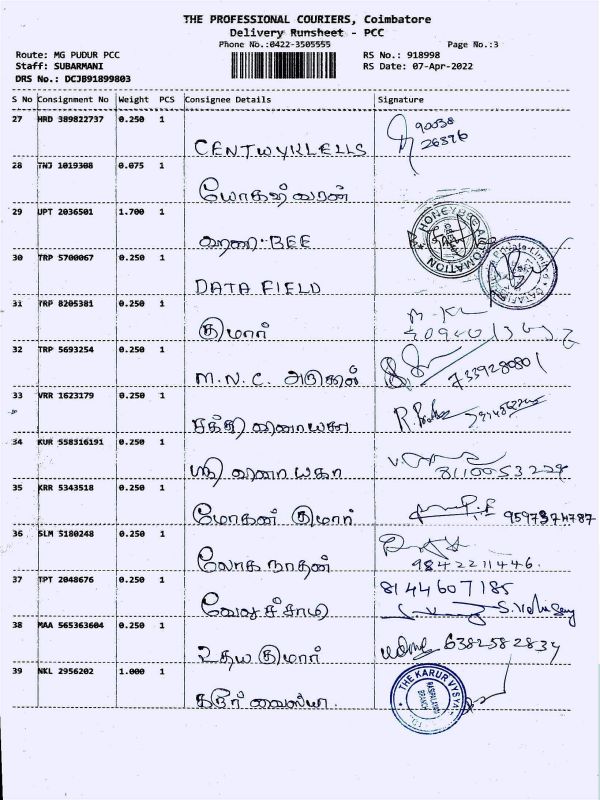 THE PROFESSIONAL COURIERS, Coimbatore
Delivery Runsheet - PCC
Phone No.:0422-3505555 Page No.:3
Route: MG PUDUR PCC RS No.: 918998
Staff: SUBARMANI RS Date: 07-Apr-2022
DRS No.: DCJB91899803
S No Consignment No Weight PCS Consignee Details Signature
27 HRD 389822737 0.250 1
CENTWYKLELLS
28 TNJ 1019308 0.075 1
யோகஸ்வரன்
29 UPT 2036501 1.700 1
BEE
HONEYBEE AUTOMATION
30 TRP 5700067 0.250 1
DATA FIELD
31 TRP 8205381 0.250 1
குமார்
32 TRP 5693254 0.250 1
M.N.C. அருகில் 7339280801
33 VRR 1623179 0.250 1
சக்தி வினாயகா
34 KUR 558316191 0.250 1
ஸ்ரீ வினாயகா
35 KRR 5343518 0.250 1
மோகன் குமார் 9597374787
36 SLM 5180248 0.250 1
லோகநாதன் 9842211446.
37 TPT 2048676 0.250 1 8144607185
வேலுச்சாமி
38 MAA 565363604 0.250 1 6382582834
உதய குமார்
39 NKL 2956202 1.000 1
கரூர் வைஸ்யா. THE KARUR VYSYA